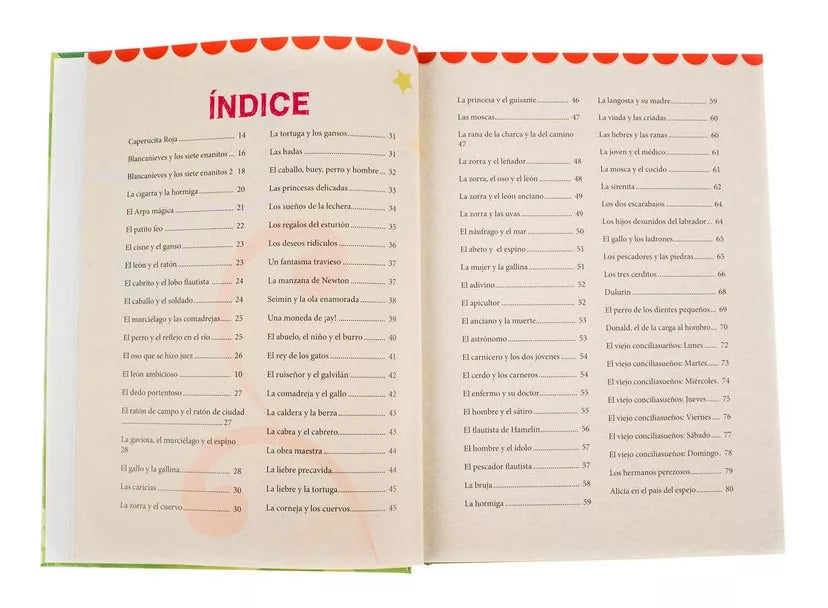 ÍNDICE
Caperucita Roja 14
Blancanieves y los siete enanitos ... 16
Blancanieves y los siete enanitos 2 18
La cigarra y la hormiga 20
El Arpa mágica 21
El patito feo 22
El cisne y el ganso 23
El león y el ratón 23
El cabrito y el lobo flautista 24
El caballo y el soldado 24
El murciélago y las comadrejas 25
El perro y el reflejo en el río 25
El oso que se hizo juez 26
El león ambicioso 10
El dedo portentoso 27
El ratón de campo y el ratón de ciudad
27
La gaviota, el murciélago y el espino
28
El gallo y la gallina 28
Las caricias 30
La zorra y el cuervo 30
La tortuga y los gansos 31
Las hadas 31
El caballo, buey, perro y hombre 32
Las princesas delicadas 33
Los sueños de la lechera 34
Los regalos del esturión 35
Los deseos ridículos 36
Un fantasma travieso 37
La manzana de Newton 37
Seimin y la ola enamorada 38
Una moneda de ¡ay! 39
El abuelo, el niño y el burro 40
El rey de los gatos 41
El ruiseñor y el galvilán 42
La comadreja y el gallo 42
La caldera y la berza 43
La cabra y el cabrero 43
La obra maestra 44
La liebre precavida 44
La liebre y la tortuga 45
La corneja y los cuervos 45
La princesa y el guisante 46
Las moscas 47
La rana de la charca y la del camino
47
La zorra y el leñador 48
La zorra, el oso y el león 48
La zorra y el león anciano 49
La zorra y las uvas 49
El náufrago y el mar 50
El abeto y el espino 51
La mujer y la gallina 51
El adivino 52
El apicultor 52
El anciano y la muerte 53
El astrónomo 53
El carnicero y los dos jóvenes 54
El cerdo y los carneros 54
El enfermo y su doctor 55
El hombre y el sátiro 55
El flautista de Hamelin 56
El hombre y el ídolo 57
El pescador flautista 57
La bruja 58
La hormiga 59
La langosta y su madre 59
La viuda y las criadas 60
Las liebres y las ranas 60
La joven y el médico 61
La mosca y el cocido 61
La sirenita 62
Los dos escarabajos 64
Los hijos desunidos del labrador 64
El gallo y los ladrones 65
Los pescadores y las piedras 65
Los tres cerditos 66
Dulurín 68
El perro de los dientes pequeños 69
Donald, el de la carga al hombro 70
El viejo conciliasueños: Lunes 72
El viejo conciliasueños: Martes 73
El viejo conciliasueños: Miércoles. 74
El viejo conciliasueños: Jueves 75
El viejo conciliasueños: Viernes 76
El viejo conciliasueños: Sábado 77
El viejo conciliasueños: Domingo. 78
Los hermanos perezosos 79
Alicia en el país del espejo 80